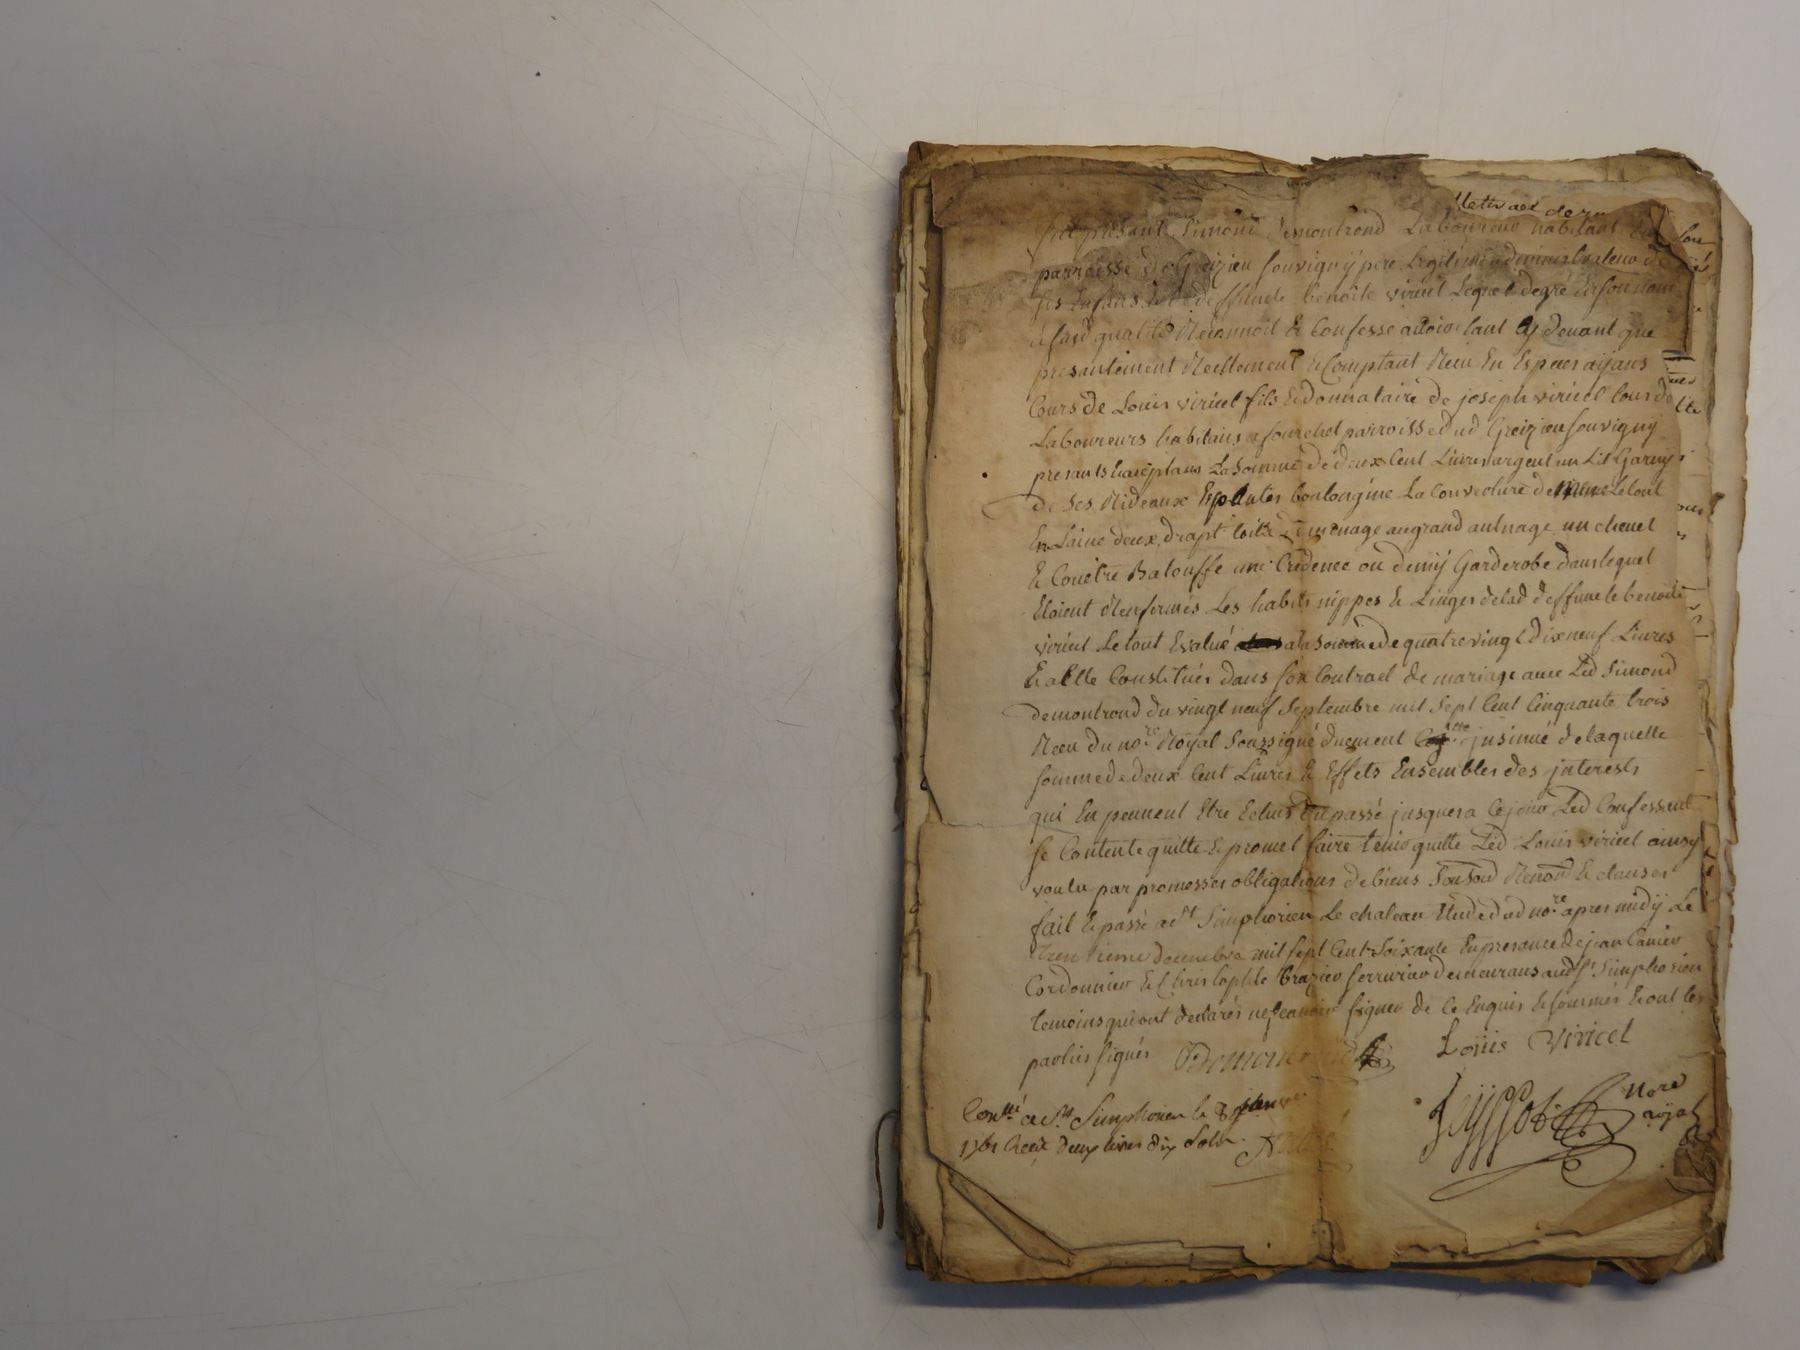 fut présant Simond demontrond Laboureur habitant
parroisse de Greizieu souvigny pere Legitime administrateur de
ses Enfans & de deffunte benoite viricel Lequel de gré En son nom
& susd qualité Reconnoit & Confesse avoir tant Cy devant que
presantement Reellement & Comptant Receu En Especes ayans
Cours de Louis viricel fils & donnataire de joseph viricel tous de
Laboureurs habitans a fourchet parroisse dud Greizieu souvigny
presants & aceptans La Somme de deux Cent Livres argent un Lit Garny
de Ses Rideaux Espentes boulongine La Couverture de même Le tout
En Laine deux drapt toile de menage au grand aulnage un chevet
& Couetre Balouffe une Credence ou demy Garderobe dans lequel
Etoient Renfermés Les habits nippes & Linges de lad deffunte benoite
viricel Le tout Evalué a la Somme de quatre vingt dix neuf Livres
& a Elle Constitués dans son Contract de mariage avec Led Simond
demontrond du vingt neuf Septembre mil Sept Cent Cinquante trois
Receu du nore Royal Soussigné duement insinué de laquelle
somme de deux Cent Livres & Effets Ensembles des interests
qui En peuvent Etre Echus du passé jusques a Ce jour Led Confessant
se Contente quitte & promet faire tenir quitte Led Louis viricel ainsy
voulu par promesses obligations de biens Renond & clauses
fait & passé a St Simphorien Le chateau Etude dud nore apres midy Le
trentieme decembre mil Sept Cent Soixante En presance de jean
Cordonnier & Christophle brazier serrurier demeurans aud St Simphorien
temoins qui ont declarés ne scavoir signer de Ce Enquis & sommés & ont les
parties signés Demontrond Louis viricel
Conllé a St Simphorien le 8 janvier
1761 Receu deux livres dix Sols
nore
royal